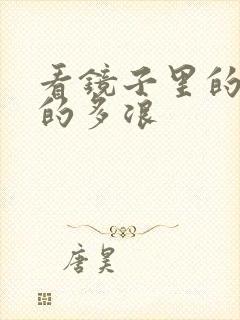 看镜子里的
的多浪
唐昊